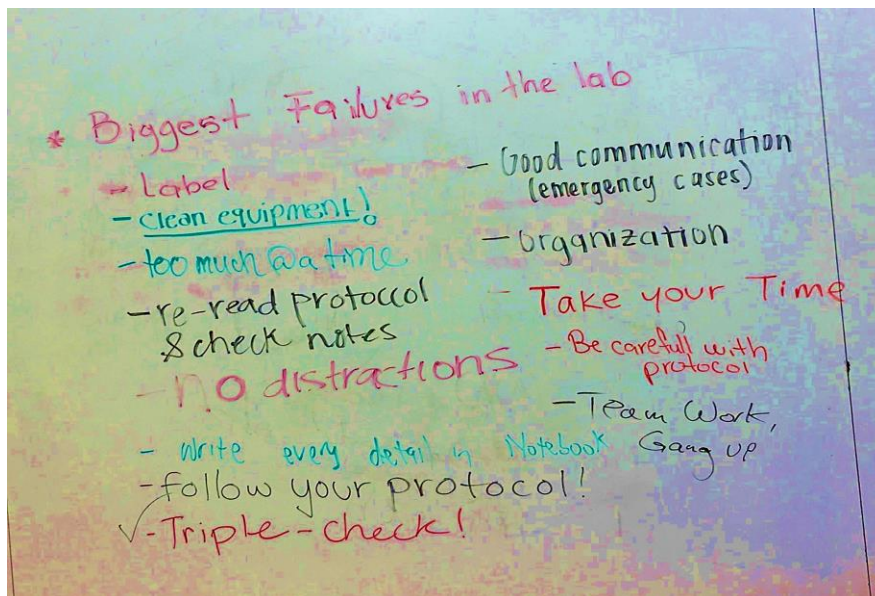 * Biggest Failures in the lab
- Label
- clean equipment!
- too much @ a time
- re-read protoccol
& check notes
- no distractions
- Write every detail in Notebook
- follow your protocol!
✓- Triple-check!
- Good communication
(emergency cases)
- organization
- Take your Time
- Be carefull with
protocol
- Team Work,
Gang up